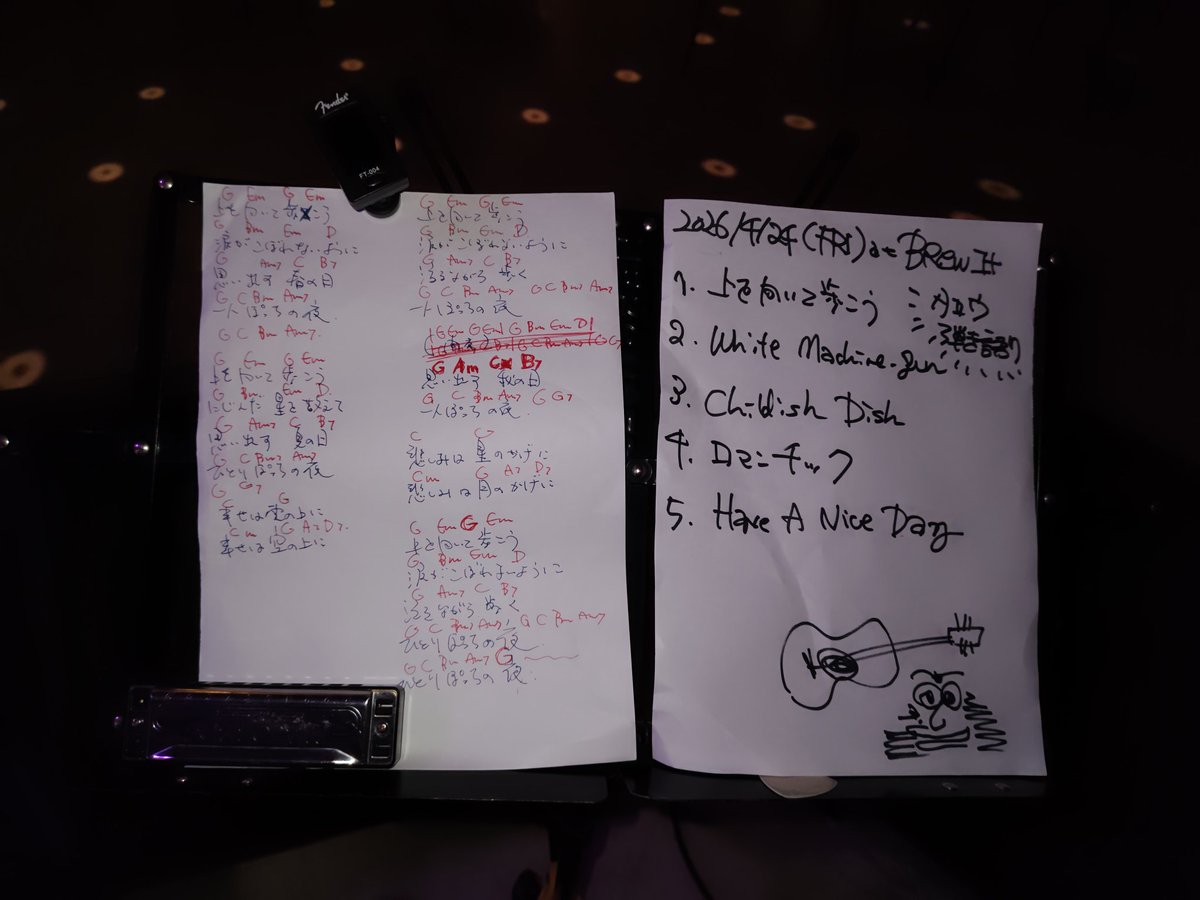 Fender
FT-004
G Em G Em
上を向いて歩こう
G Bm Em D
涙がこぼれないように
G Am7 C B7
思い出す 春の日
G C Bm Am7
一人ぼっちの夜
G C Bm Am7
G Em G Em
上を向いて歩こう
G Bm Em D
にじんだ 星を数えて
G Am7 C B7
思い出す 夏の日
G C Bm7 Am7
ひとりぼっちの夜
G G7
C G
幸せは雲の上に
Cm G A7 D7
幸せは空の上に
G Em G Em
上を向いて歩こう
G Bm Em D
涙がこぼれないように
G Am7 C B7
泣きながら 歩く
G C Bm Am7 G C Bm7 Am7
一人ぼっちの夜
G Em G Em G Bm Em D
G Am C B7
思い出す 秋の日
G C Bm7 Am7 G G7
一人ぼっちの夜
C G
悲しみは星のかげに
Cm G A7 D7
悲しみは月のかげに
G Em G Em
上を向いて歩こう
G Bm Em D
涙がこぼれないように
G Am7 C B7
泣きながら 歩く
G C Bm7 Am7 G C Bm Am7
ひとりぼっちの夜
G C Bm Am7 G
ひとりぼっちの夜
2026/4/24 (FRI) at BREW It
1. 上を向いて歩こう
弾き語り
2. White Machine-gun
3. Childish Dish
4. ロマンチック
5. Have A Nice Day